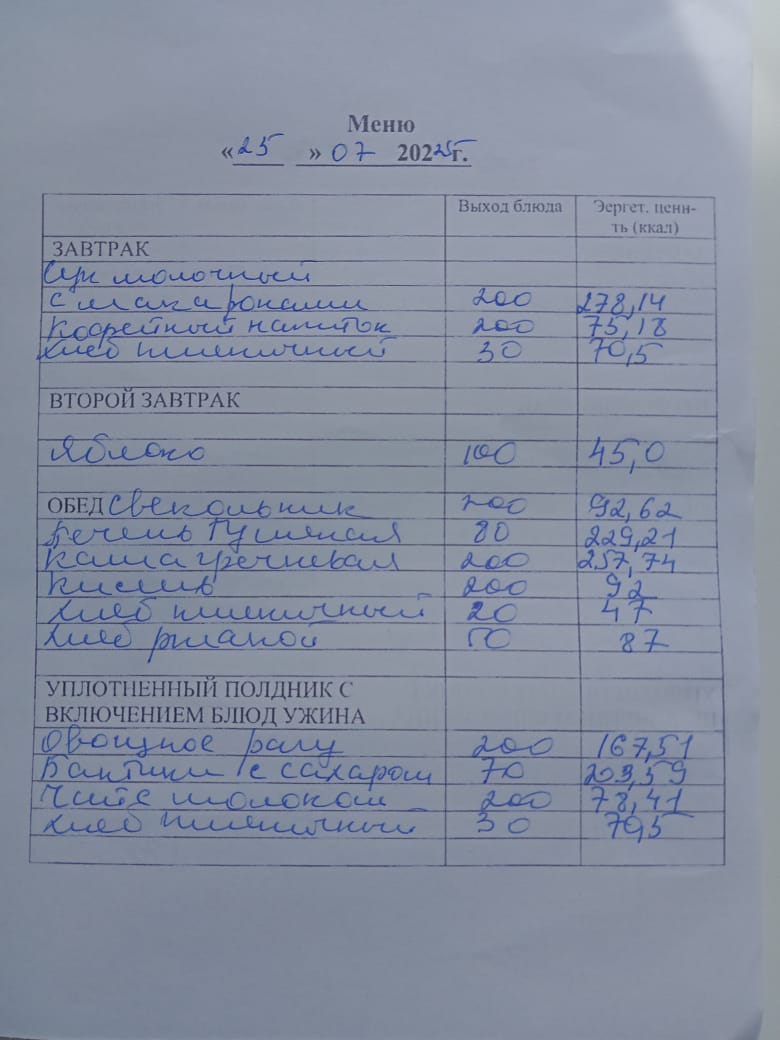 Меню
«25» 07 2025г.
Выход блюда Эергет. ценн-ть (ккал)
ЗАВТРАК
Суп молочный
с макаронами 200 278,14
Кофейный напиток 200 75,18
Хлеб пшеничный 30 70,5
ВТОРОЙ ЗАВТРАК
Яблоко 100 45,0
ОБЕД Свекольник 200 92,62
Печень тушеная 80 229,21
Каша гречневая 200 257,74
Кисель 200 92
Хлеб пшеничный 20 47
Хлеб ржаной 50 87
УПЛОТНЕННЫЙ ПОЛДНИК С
ВКЛЮЧЕНИЕМ БЛЮД УЖИНА
Овощное рагу 200 167,51
Бантики с сахаром 70 203,59
Чай с молоком 200 78,41
Хлеб пшеничный 30 70,5